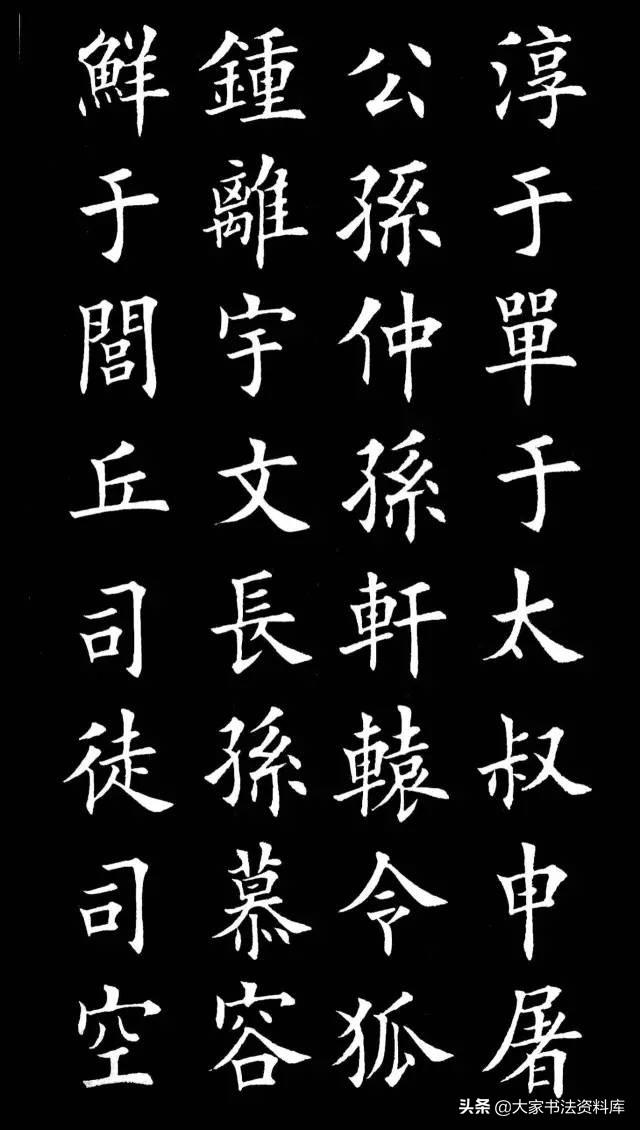 淳于單于太叔申屠
公孫仲孫軒轅令狐
鍾離宇文長孫慕容
鮮于閭丘司徒司空
头条 @大家书法资料库